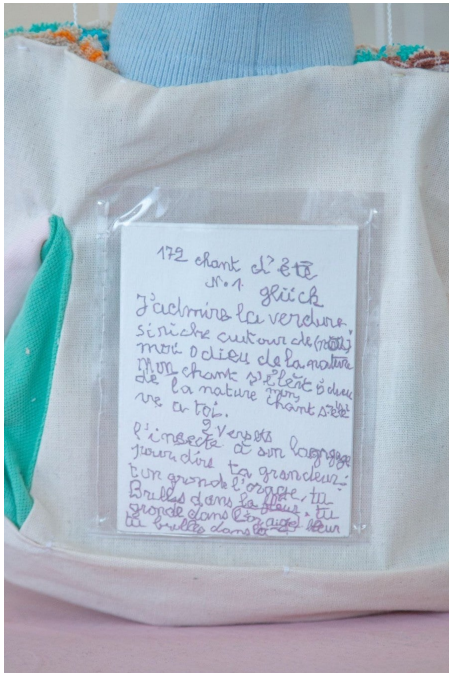 172 chant d'été
N° 1. glück
J'admire la verdure
si riche autour de (moi)
moi O dieu de la nature
mon chant s'élève ô dieu
de la nature mon chant s'élè
ve a toi.
2 versets
l'insecte a son lagage
pour dire ta grandeur:
gronde l'orage, tu
Brilles dans la fleur. tu
gronde dans l'orage fleur
tu brilles dans la